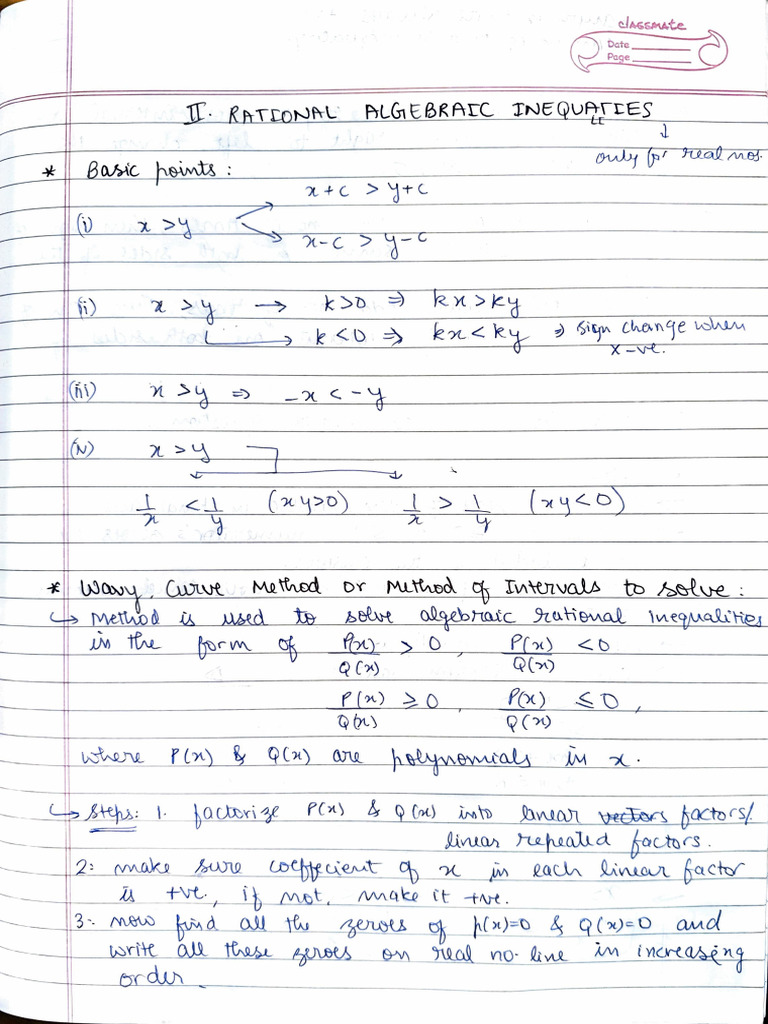 classmate
Date
Page
II. RATIONAL ALGEBRAIC INEQUATIES
LI
↓
only for real nos.
* Basic points :
x+c > y+c
(i) x > y
x-c > y-c
(ii) x > y → k>0 ⇒ kx > ky
→ k < 0 ⇒ kx < ky ⇒ sign change when
x -ve.
(iii) x > y ⇒ -x < -y
(iv) x > y
1/x < 1/y (xy>0) 1/x > 1/y (xy<0)
* Wavy Curve Method or Method of Intervals to solve :
↳ Method is used to solve algebraic rational inequalities
in the form of P(x)/Q(x) > 0, P(x)/Q(x) < 0
P(x)/Q(x) ≥ 0, P(x)/Q(x) ≤ 0,
where P(x) & Q(x) are polynomials in x.
↳ Steps: 1. factorize P(x) & Q(x) into lanear vectors factors/
linear repeated factors.
2: make sure coeffecient of x in each linear factor
is +ve, if not, make it +ve.
3: now find all the zeroes of p(x)=0 & Q(x)=0 and
write all these zeroes on real no. line in increasing
order.